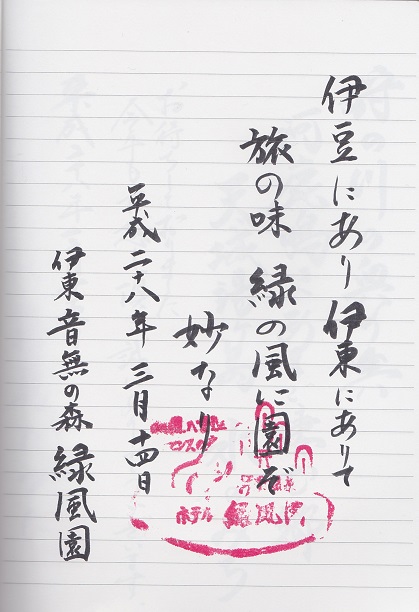 伊豆にあり伊東にありて
旅の味 緑の風に園ぞ
妙なり
平成二十八年 三月十四日
伊東 音無の森 緑風園
ホテル 緑風園